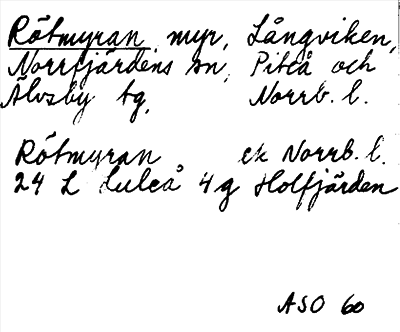 Rötmyran, myr, Långviken,
Norrfjärdens sn, Piteå och
Älvsby tg, Norrb. l.
Rötmyran ek Norrb. l.
24 L Luleå 4g Holfjärden
ASO 60